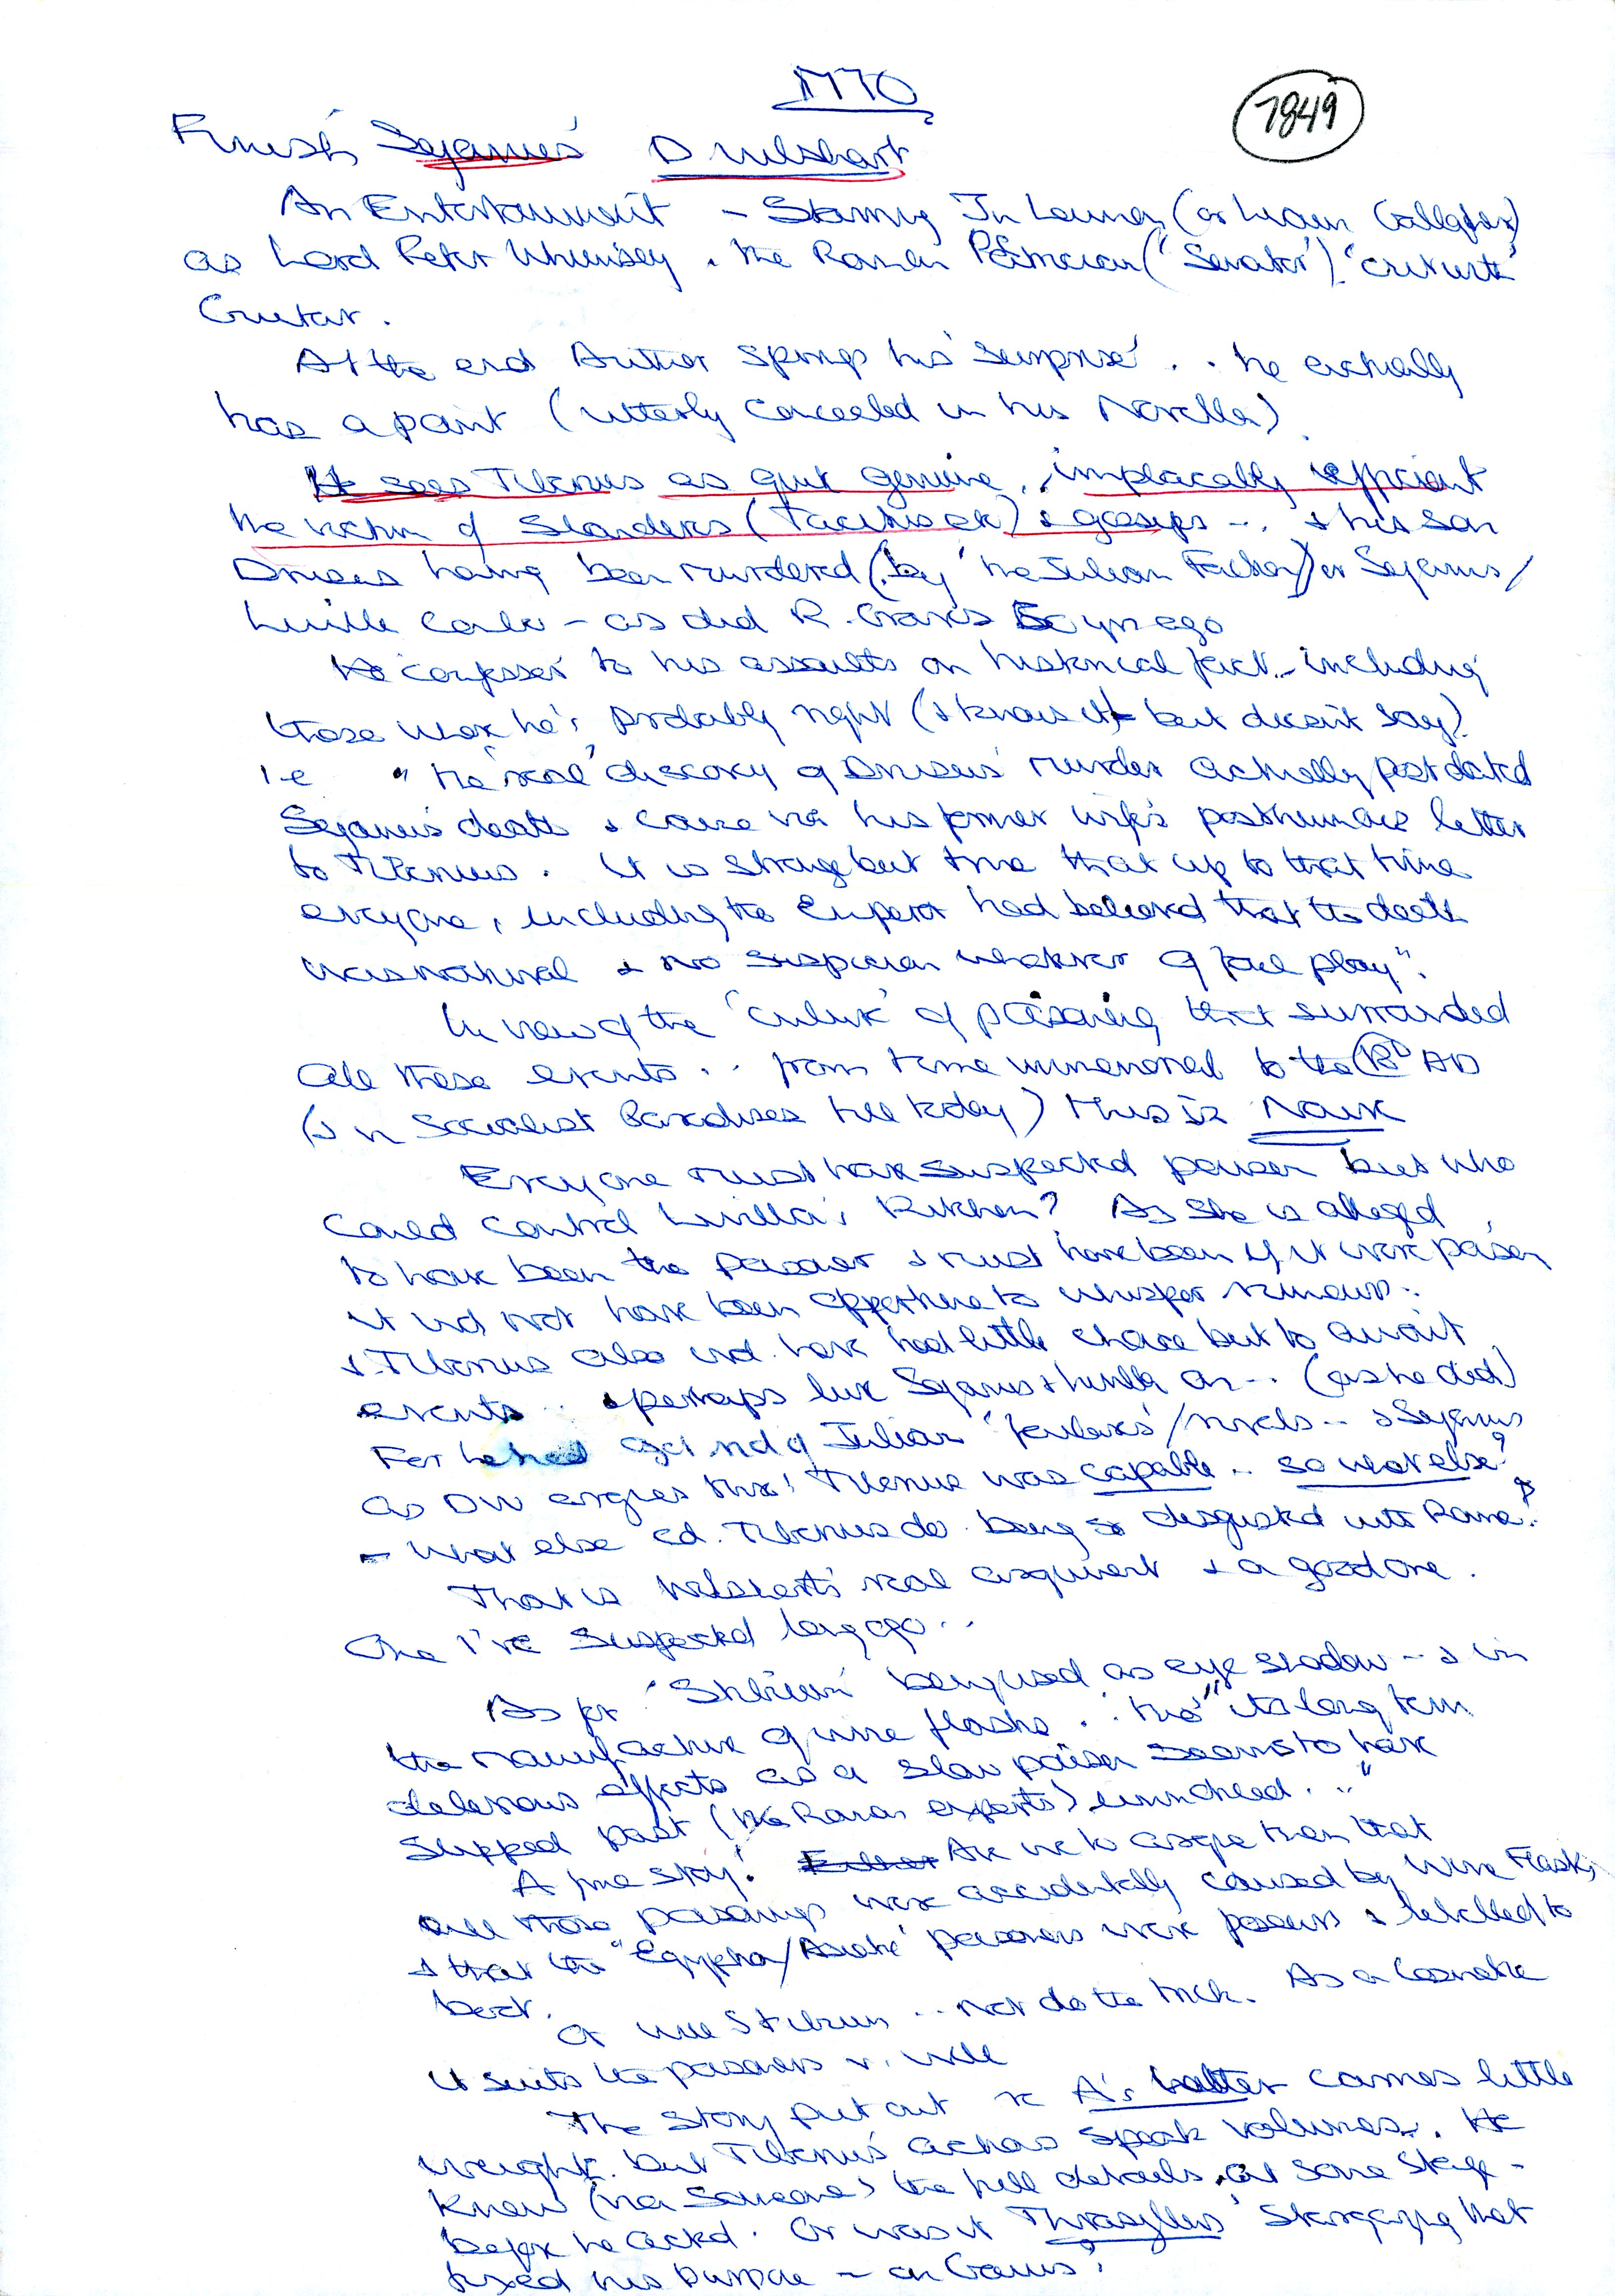 MTO
7849
Finish 'Sejanus' D Wishart
An Entertainment - Starring Jn Lennon (or Liam Gallagher)
as Lord Peter Whimsey, the Roman ('Senator')
Guitar.
At the end Author springs his 'surprise' .. he actually
has a point (utterly concealed in his Novella).
He sees Tiberius as quite genuine, implacably efficient
the victim of Slanderers (Tacitus etc) & gossips -. & his son
Drusus having been murdered (by 'the Julian Faction') or Sejanus/
Livilla - as did R. Graves 50 yrs ago
He 'confesses' to his assaults on historical fact.. including
those where he's probably right (& knows it but doesn't say).
i.e " the 'real' discovery of Drusus' murder actually postdated
Sejanus' death & came via his former wife's posthumous letter
to Tiberius. It is strange but true that up to that time
everyone, including the Emperor had believed that the death
was natural & no suspicion whatever of foul play".
In view of the 'culture' of poisoning that surrounded
all these events .. from time immemorial to the AD
(& in Socialist Paradises till today) this is Naive
Everyone must have suspected poison but who
could control Livilla's Kitchen? As she is alleged
to have been the poisoner & must have been if it were poison
it wd not have been opportune to whisper rumours..
& Tiberius also wd. have had little choice but to await
events .. perhaps lure Sejanus & Livilla on -. (as he did)
For he had get rid of Julian /rivals -. & Sejanus
as DW argues that Tiberius was capable .. so what else?
- what else cd. Tiberius do being so disgusted with Rome?
That is Wishart's real argument & a good one.
One I've suspected long ago ..
As for 'Stibium' being used as eye shadow - & in
the manufacture of wine flasks .. tho' "its long term
delerious effects as a slow poison seems to have
slipped past (the Roman experts) unnoticed .."
A fine story! Are we to argue then that
all those poisonings were accidentally caused by wine Flasks
& that the "Egyptian/Asiatic' poisoners were & labelled to
boot.
Or will Stibium .. not do the trick. As a Cosmetic
it suits the poisoners v. well
The story put out re A's letter carries little
weight. but Tiberius' actions speak volumes. He
knew (via someone) the full details at some stage -
before he acted. Or was it Thrasyllus' Stargazing that
fixed his purpose - on Gaius?